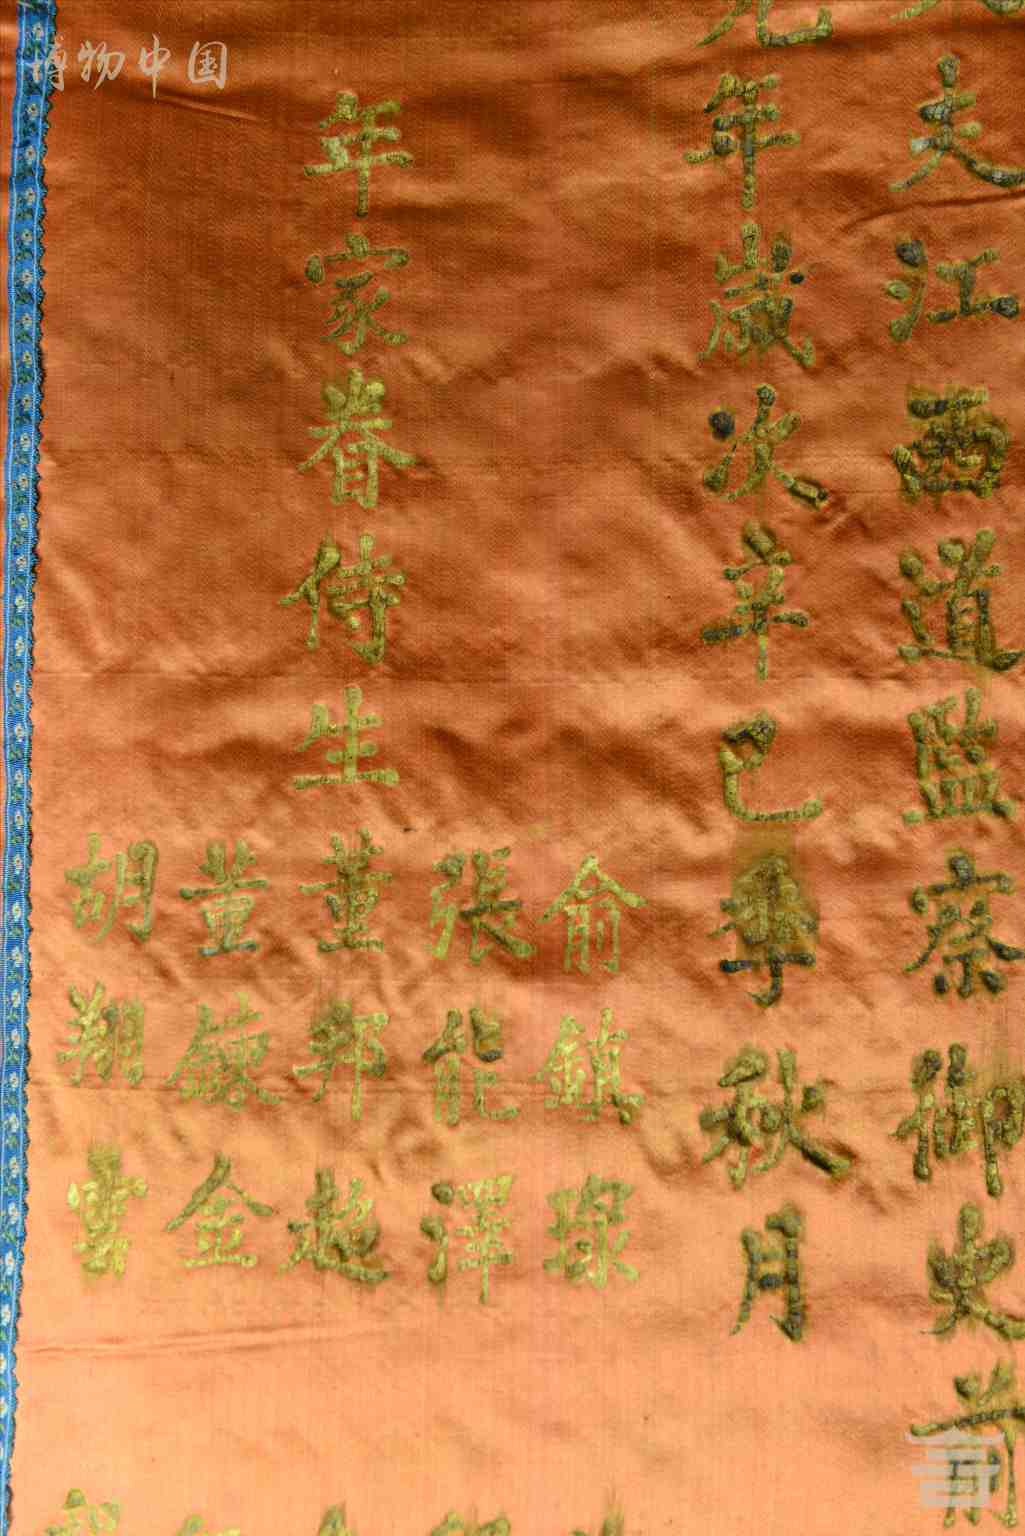 夫江西道監察御史前
九年歲次辛巳季秋月
年家眷侍生
俞鎮琭
張能澤
董邦起
董鍊金
胡翔雲
博物中国